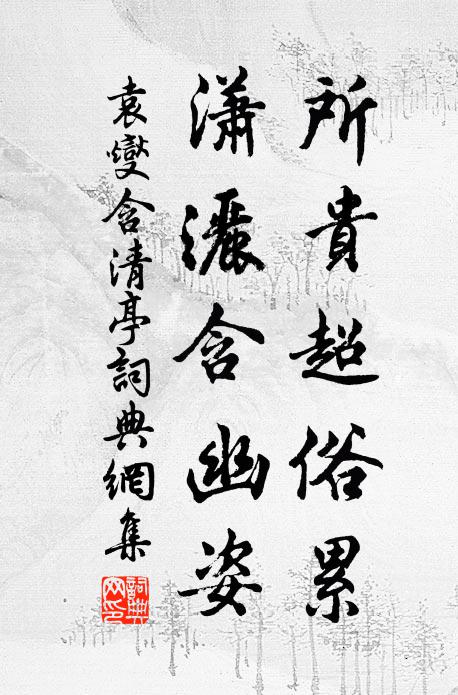 所貴超俗累
瀟灑含幽姿
袁燮含清亭詞典網集
詞典網印